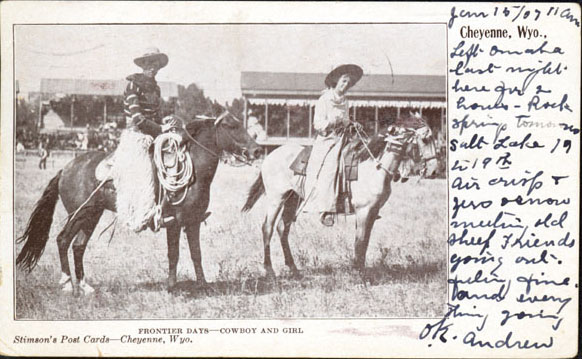 Jan 15/07 11 am
Cheyenne, Wyo.,
Left Omaha
last night
here for 2
hours - Rock
Springs tomorrow
Salt Lake 17
to 19th
Air crisp &
zero & snow
meeting old
sheep Friends
going out.
feling fine.
and every
thing going
O.K. Andrew
FRONTIER DAYS—COWBOY AND GIRL
Stimson's Post Cards—Cheyenne, Wyo.